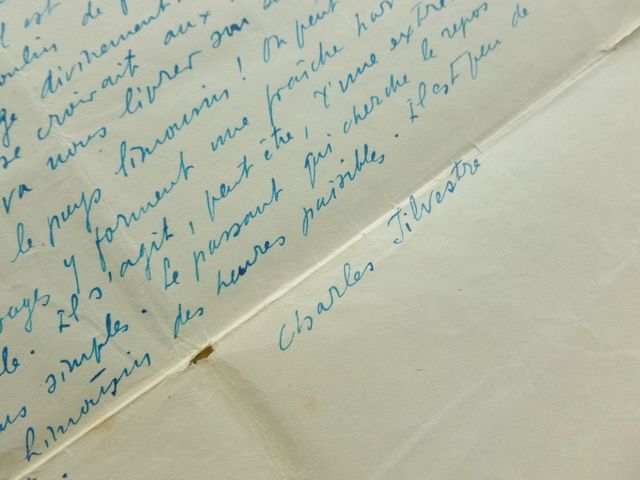 est
moulin de
divinement
se croirait aux
va nous livrer son
le pays limousin! On peut
y forment une fraîche har
Il s'agit, peut être, d'une extrê
simples. Le passant qui cherche le repos
limousin des heures paisibles. Il est peu de
Charles Silvestre